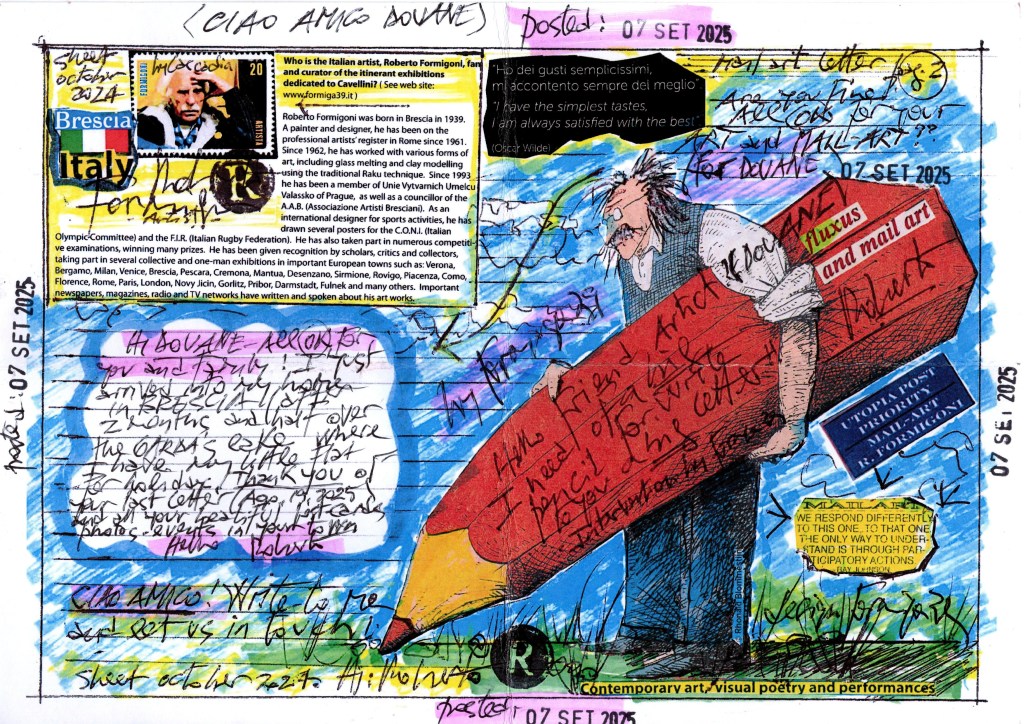 (CIAO AMICO DOUANE)
posted: 07 SET 2025
sheet
october
2024
FORMIGONI
20
ARTISTA
Brescia
Italy
R
Who is the Italian artist, Roberto Formigoni, fan
and curator of the itinerant exhibitions
dedicated to Cavellini? ( See web site:
www.formiga39.it )
Roberto Formigoni was born in Brescia in 1939.
A painter and designer, he has been on the
professional artists' register in Rome since 1961.
Since 1962, he has worked with various forms of
art, including glass melting and clay modelling
using the traditional Raku technique. Since 1993
he has been a member of Unie Vytvarnich Umelcu
Valassko of Prague, as well as a councillor of the
A.A.B. (Associazione Artisti Bresciani). As an
international designer for sports activities, he has
drawn several posters for the C.O.N.I. (Italian
Olympic Committee) and the F.I.R. (Italian Rugby Federation). He has also taken part in numerous competiti-
ve examinations, winning many prizes. He has been given recognition by scholars, critics and collectors,
taking part in several collective and one-man exhibitions in important European towns such as: Verona,
Bergamo, Milan, Venice, Brescia, Pescara, Cremona, Mantua, Desenzano, Sirmione, Rovigo, Piacenza, Como,
Florence, Rome, Paris, London, Novy Jicin, Gorlitz, Pribor, Darmstadt, Fulnek and many others. Important
newspapers, magazines, radio and TV networks have written and spoken about his art works.
"Ho dei gusti semplicissimi,
mi accontento sempre del meglio"
"I have the simplest tastes,
I am always satisfied with the best"
(Oscar Wilde)
Mail art letter pag. 2
your
ART and MAIL-ART ??
for DOUANE
07 SET 2025
fluxus
and mail art
Hello friend artist
I need of red
pencil for write
to you long letter!!
Hi DOUANE
you and family! I just
arrived into my home
in BRESCIA after
2 months and half over
the GARDA'S lake where
I have my little flat
for holiday! Thank you of
your last letter (Ago, 19, 2025
and all your beautiful postcards
photos events in your town
Hello Roberto
posted: 07 SET 2025
07 SET 2025
UTOPIA POST
PRIORITY
MAIL-ART
R. FORMIGONI
MAIL ART
WE RESPOND DIFFERENTLY
TO THIS ONE, TO THAT ONE
THE ONLY WAY TO UNDER-
STAND IS THROUGH PAR-
TICIPATORY ACTIONS.
RAY JOHNSON
CIAO AMICO! Write to me
and let us in touch!
sheet october 2024 Hi! Roberto
R
Contemporary art, visual poetry and performances
posted: 07 SET 2025